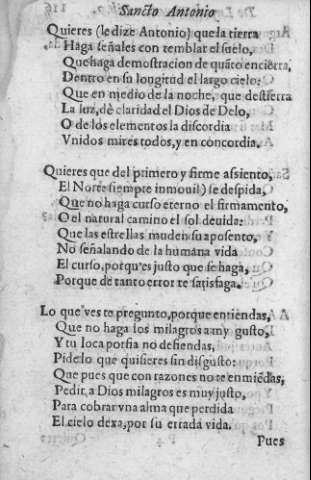 Sancto Antonio
Quieres (le dize Antonio) que la tierra
Haga señales con temblar el suelo,
Que haga demostracion de quãto encierra,
Dentro en su longitud el largo cielo:
Que en medio de la noche, que destierra
La luz, dè claridad el Dios de Delo,
O de los elementos la discordia
Vnidos mires todos, y en concordia.
Quieres que del primero y firme assiento,
El Norte siempre inmouil) se despida,
Que no haga curso eterno el firmamento,
O el natural camino el sol deuida:
Que las estrellas muden su aposento,
No señalando de la humãna vida
El curso, porqu'es justo que se haga,
Porque de tanto error te satisfaga.
Lo que ves te pregunto, porque entiendas,
Que no haga los milagros a my gusto,
Y tu loca porfia no defiendas,
Pidelo que quisieres sin disgusto:
Que pues que con razones no te enmiẽdas,
Pedir a Dios milagros es muy justo,
Para cobrar vna alma que perdida
El cielo dexa, por su errada vida.
Pues